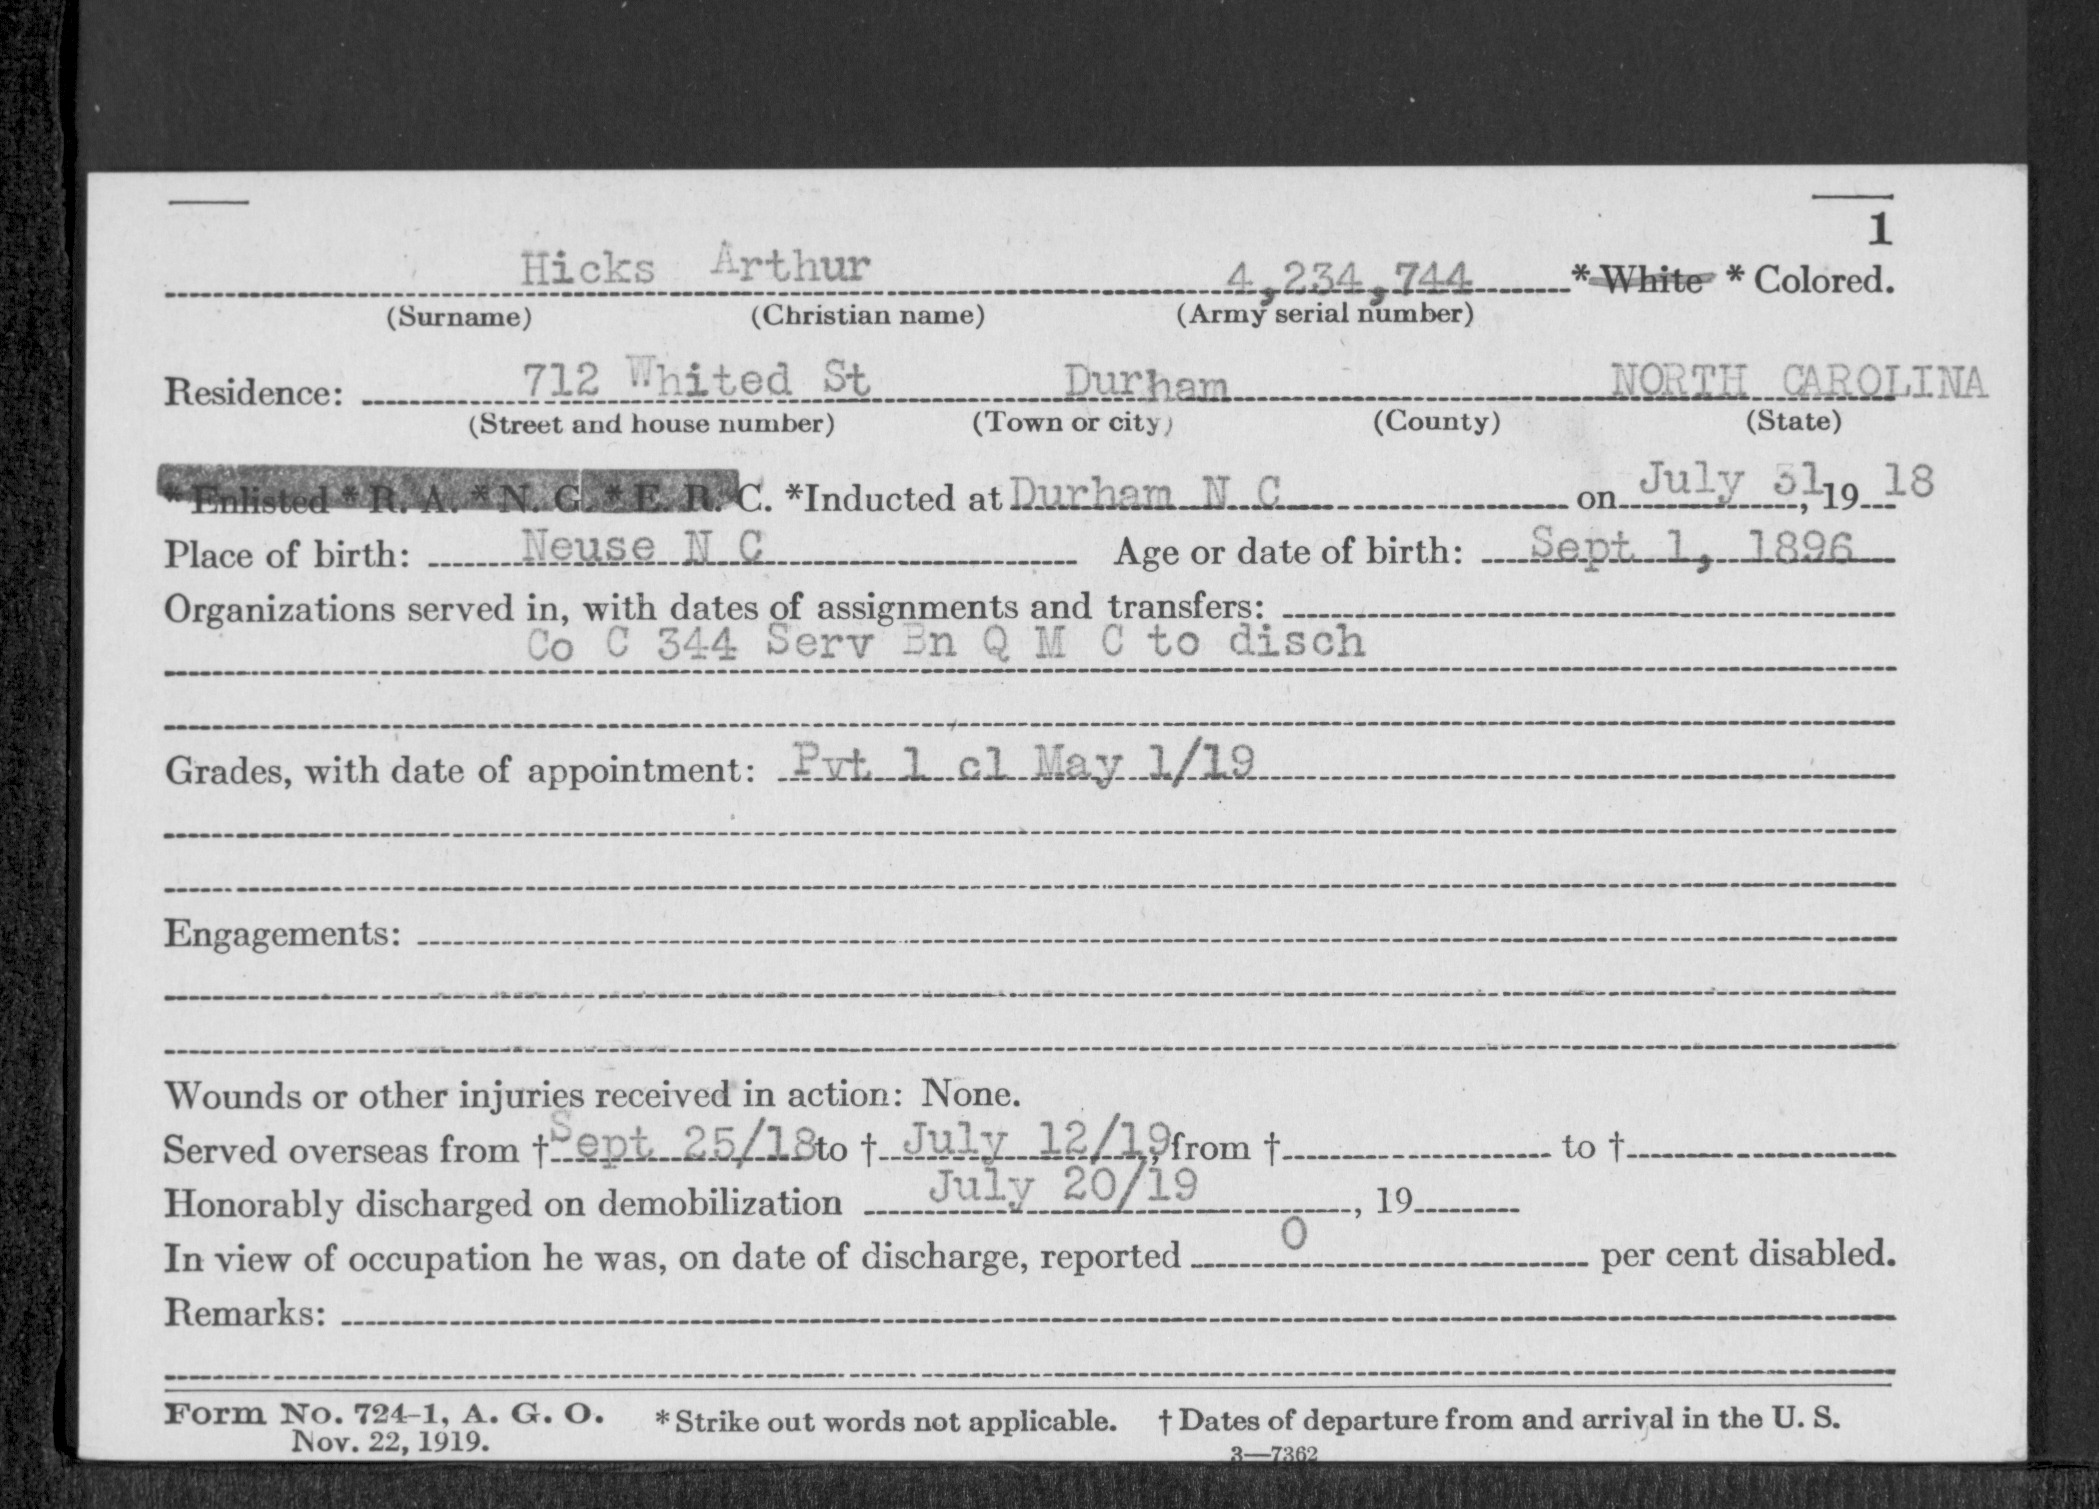 1
Hicks Arthur 4,234,744 * White * Colored.
(Surname) (Christian name) (Army serial number)
Residence: 712 Whited St Durham NORTH CAROLINA
(Street and house number) (Town or city) (County) (State)
* Enlisted * R. A. * N. G. * E. R. C. *Inducted at Durham N C on July 31, 19 18
Place of birth: Neuse N C Age or date of birth: Sept 1, 1896
Organizations served in, with dates of assignments and transfers:
Co C 344 Serv Bn Q M C to disch
Grades, with date of appointment: Pvt 1 cl May 1/19
Engagements:
Wounds or other injuries received in action: None.
Served overseas from † Sept 25/18 to † July 12/19, from † to †
Honorably discharged on demobilization July 20/19, 19
In view of occupation he was, on date of discharge, reported 0 per cent disabled.
Remarks:
Form No. 724-1, A. G. O. * Strike out words not applicable. † Dates of departure from and arrival in the U. S.
Nov. 22, 1919. 3—7362